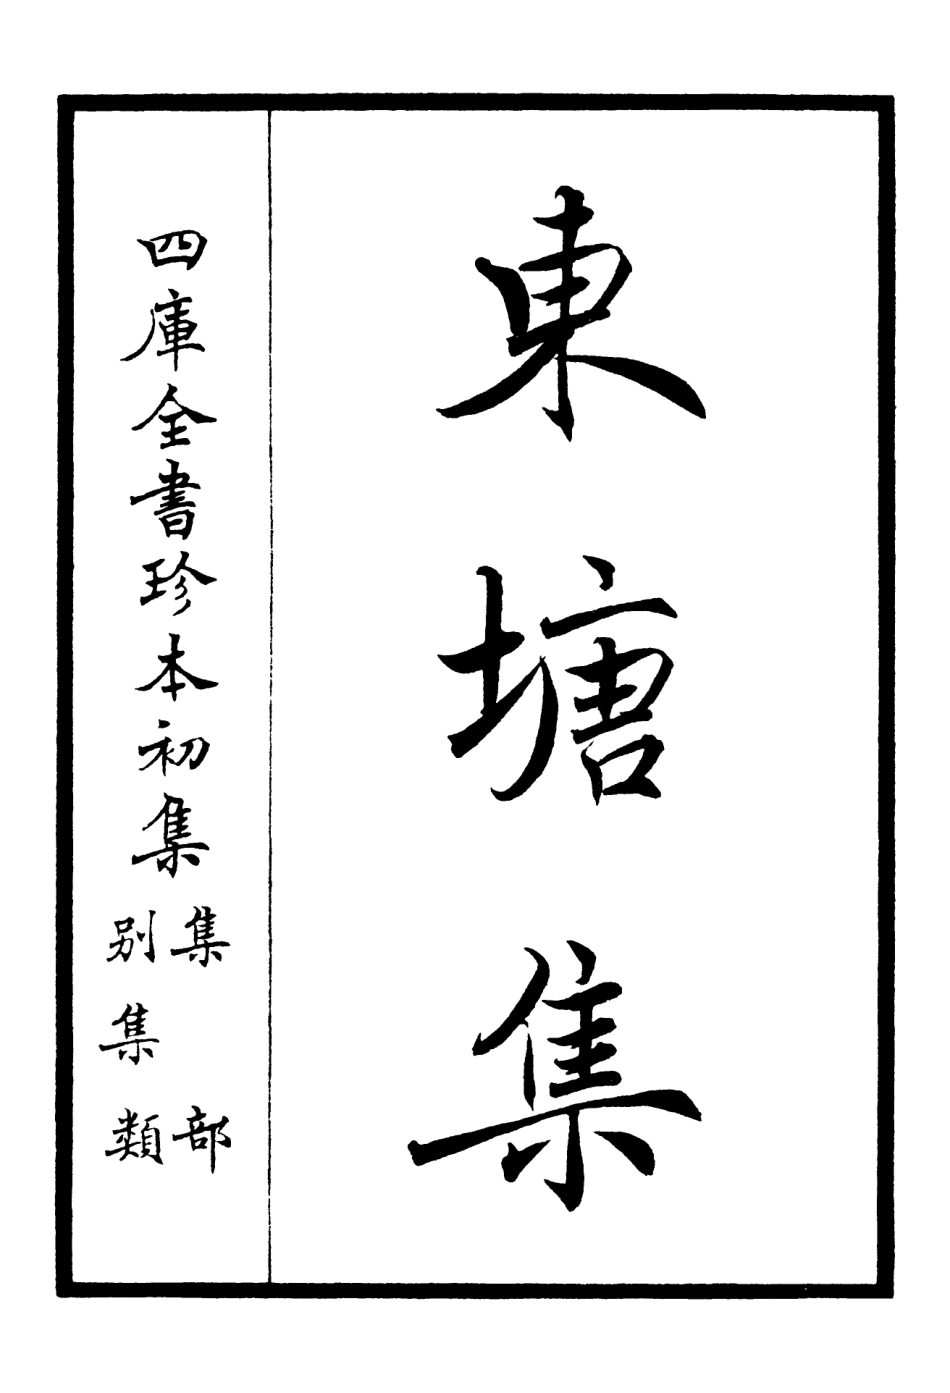 東塘集
四庫全書珍本初集
集部
別集類